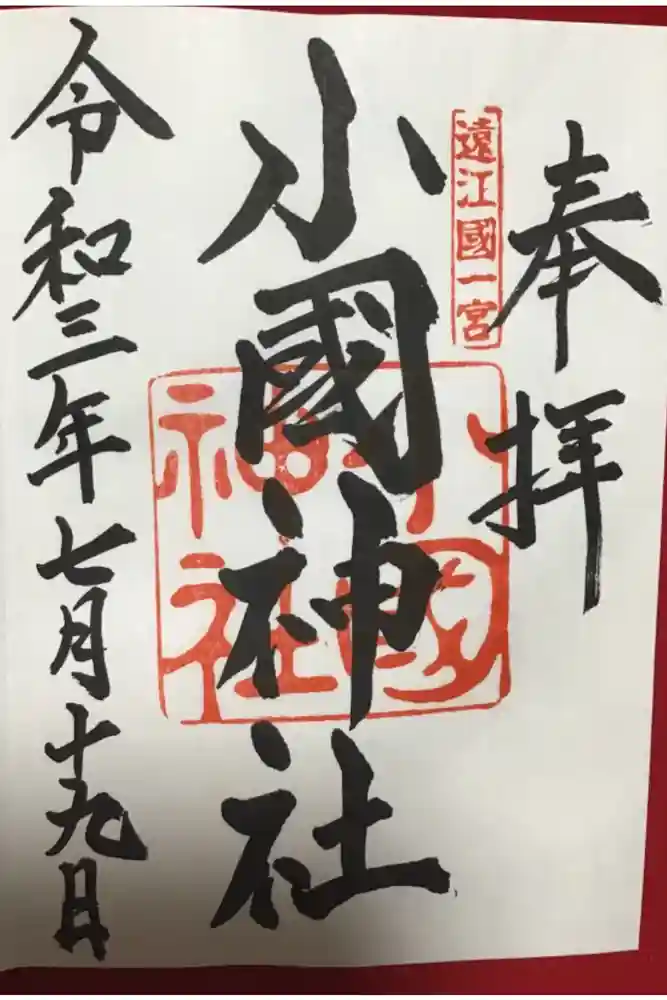 奉拝
遠江國一宮
小國神社
小國
神社
令和三年七月十九日